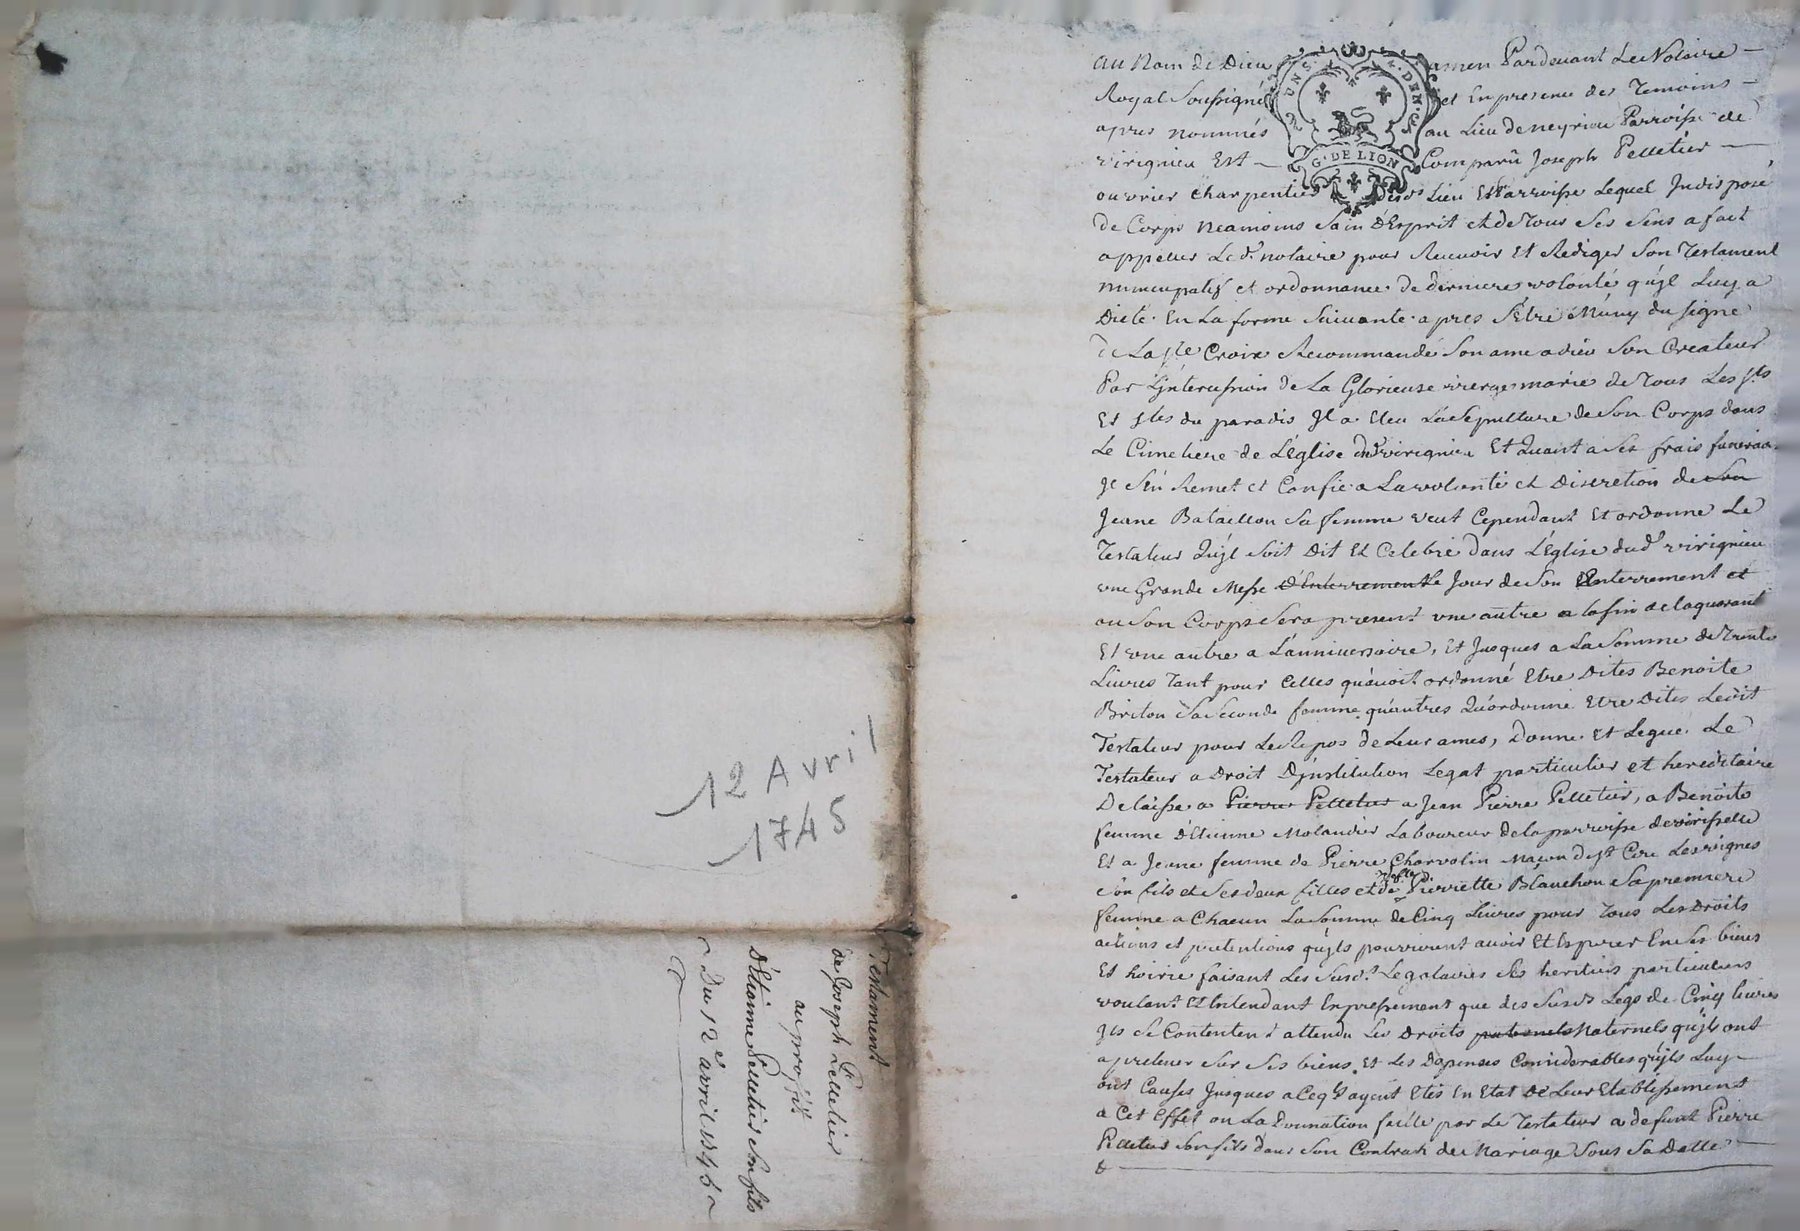 12 Avril
1745
Testament
de Joseph Pelletier
au proffit
d'Etienne Pelletier son fils
Du 12e avril 1745
UN S. 4. DEN.
G. DE LION
au Nom de Dieu amen Pardevant Le Notaire
Royal Soussigné et En presence des Temoins
apres nommés au Lieu de neyrieu Parroisse de
virignieu Est Comparû Joseph Pelletier
ouvrier charpentier desds Lieu Et Parroisse Lequel Indisposé
de Corps Neamoins Sain D'Esprit et de Tous Ses Sens a fait
appeller Led. notaire pour Recevoir Et Rediger Son Testament
nuncupatif et ordonnance de derniere volonté qu'jl Luy a
Dicté En La forme Suivante apres S'être Muny du signe
de La ste Croix Recommandé Son ame a dieu Son Createur
Par L'jntercession de La Glorieuse vierge marie de Tous Les sts
Et stes du paradis Jl a Eleu La Sepulture de Son Corps dans
Le Cimetiere de L'Eglise dud virignieu Et Quant a Ses frais funeraux
Jl S'en Remet et Confie a La volonté et Discretion de Son
Jeane Bataillon Sa femme veut Cependant Et ordonne Le
Testateur Qu'jl Soit Dit Et Celebré dans L'Eglise dud virignieu
une Grande Messe D'Enterrement Le Jour de Son Enterrement et
ou Son Corps Sera present une autre a la fin de la quarant
Et une autre a L'anniversaire, Et Jusques a La Somme de Trente
Livres Tant pour Celles qu'avoit ordonné Etre Dites Benoite
Briton Sa Seconde femme qu'autres Qu'ordonne Etre Dites Ledit
Testateur pour Le Repos de Leur ames, Donne Et Legue Le
Testateur a Droit D'jnstitution Legat particulier et hereditaire
Delaisse a Pierre Pelletier a Jean Pierre Pelletier, a Benoite
femme d'Etienne Molandier Laboureur de la parroisse de virisselle
Et a Jeane femme de Pierre Charvolin Maçon de st Cire Les vignes
Son fils et Ses deux filles et de Pierrette Blanchon Sa premiere
femme a Chacun La Somme de Cinq Livres pour Tous Les Droits
actions et pretentions qu'jls pourroient avoir Et Esperer En Ses biens
Et hoirie faisant Les Susd. Legataires Ses heritiers particuliers
voulant Et Entendant Expressement que des Susds Legs de Cinq livres
Jls Se Contentent attendu Les Droits paternels Maternels qu'jls ont
a prelever Sur Ses biens Et Les Depenses Considerables qu'jls Luy
ont Causés Jusques a Ce qu'ayent Etés En Etat De Leur Etablissement
a Cet Effet ou La Donnation faitte par Le Testateur a defunt Pierre
Pelletier Son fils dans Son Contrat de Mariage Sous Sa Datte